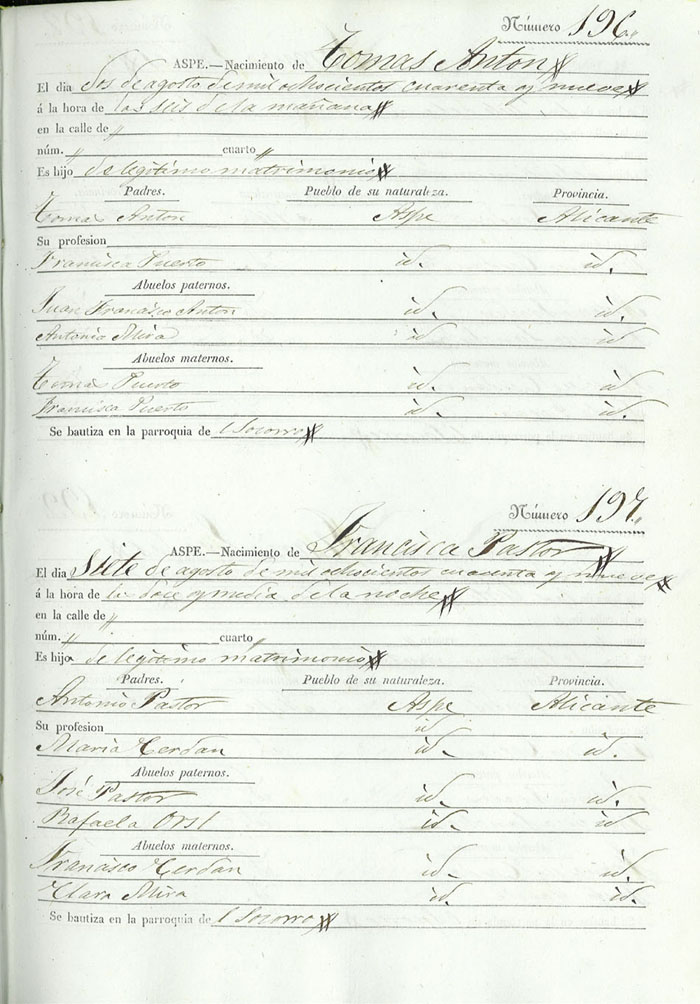 Número 196.
ASPE.—Nacimiento de Tomas Anton
El dia dos de agosto de mil ochocientos cuarenta y nueve
á la hora de las seis de la mañana
en la calle de "
núm. " cuarto "
Es hijo de legitimo matrimonio
Padres. Pueblo de su naturaleza. Provincia.
Tomas Anton Aspe Alicante
Su profesion
Francisca Puerto id. id.
Abuelos paternos.
Juan Francisco Anton id. id
Antonia Mira id id
Abuelos maternos.
Tomas Puerto id. id
Francisca Puerto id. id.
Se bautiza en la parroquia de l Socorro
Número 197.
ASPE.—Nacimiento de Francisca Pastor
El dia Siete de agosto de mil ochocientos cuarenta y nueve
á la hora de las doce y media de la noche
en la calle de "
núm. " cuarto "
Es hija de legitimo matrimonio
Padres. Pueblo de su naturaleza. Provincia.
Antonio Pastor Aspe Alicante
Su profesion id
Maria Cerdan id. id.
Abuelos paternos.
José Pastor id. id.
Rafaela id. id
Abuelos maternos.
Francisco Cerdan id. id.
Clara Mira id. id.
Se bautiza en la parroquia de l Socorro